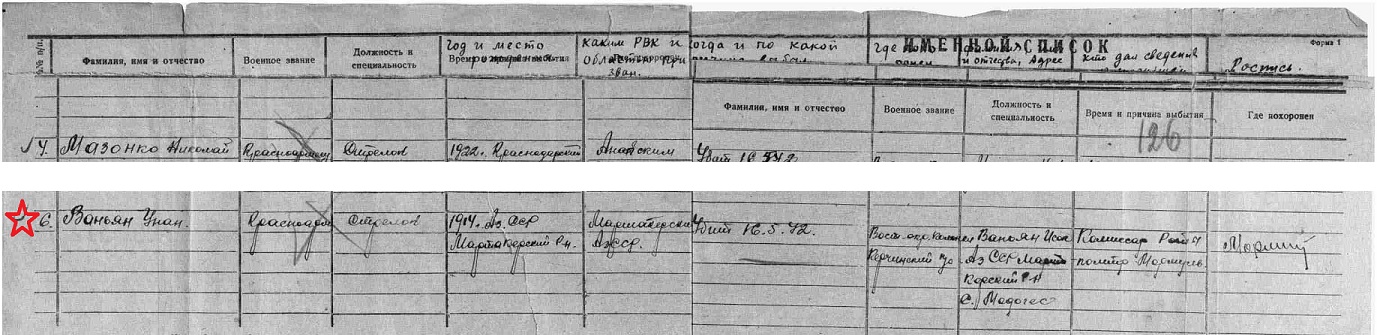 ИМЕННОЙ СПИСОК
Форма 1
№№ п/п.
Фамилия, имя и отчество
Военное звание
Должность и
специальность
год и место
рождения
каким РВК и
области при
зван.
когда и по какой
причине выбыл
где
и отчество, адрес
кто дал сведения
Роспись.
Фамилия, имя и отчество
Военное звание
Должность и
специальность
Время и причина выбытия
Где похоронен
126
4. Мазонко Николай
Красноармеец
Стрелок
1922г. Краснодарский
Анапским
Убит 16.5.42
6. Ваньян Унан.
Красноарм
Стрелок
1914г. Аз. ССР
Мартакерский Р-н.
Мартакерским
АзССР.
Убит 16.5.42.
Вост. окр.
Керчинский
Ваньян Исак
Аз ССР Марта
керский Р-Н
с. Мадагес
Комиссар Роты
политр